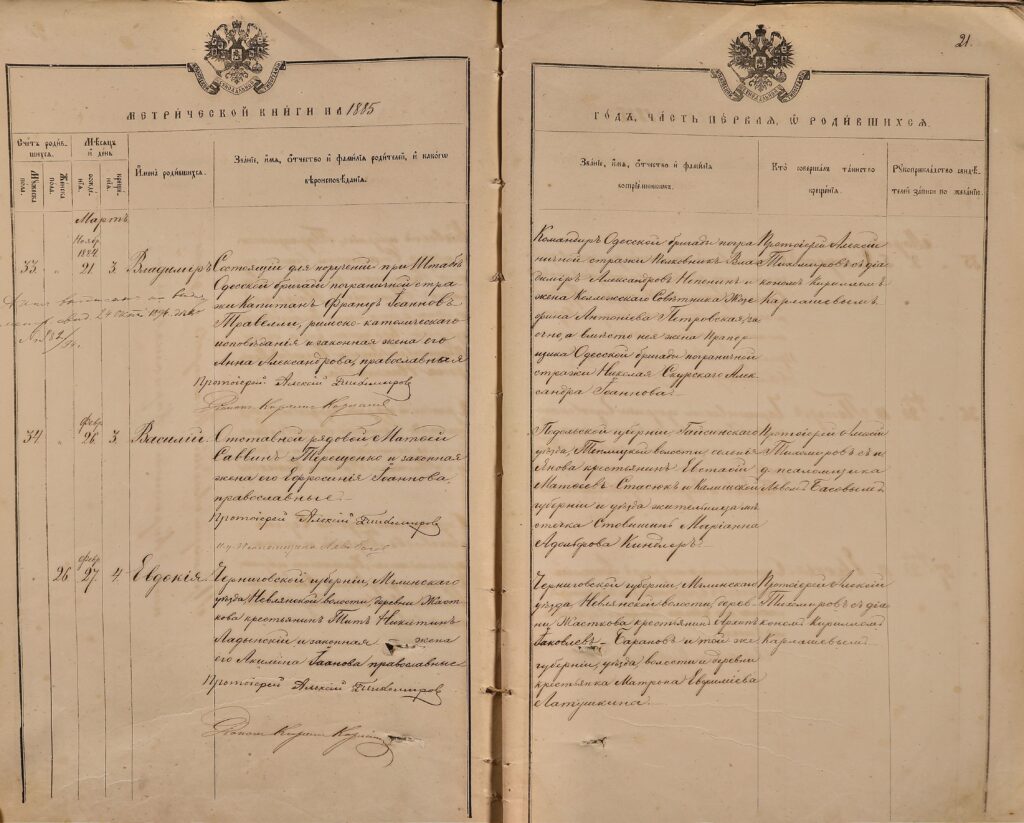 МЕТРИ́ЧЕСКОЙ КНИ́ГИ НА 1885
Счетъ роди́вшихся.
Мѣсяцъ и день
Мꙋжеска пола.
Женска пола.
рожденїѧ.
крещенїѧ.
Имена родившихсѧ.
Званїе, имѧ, ѻтчество и фамилїѧ родителей, и какогѡ вѣроисповѣданїѧ.
Мартъ
Ноябр.
1884
33. " 21 3 Владиміръ
Состоящій для порученій при Штабѣ
Одесской бригады пограничной стра-
жи Капитанъ Францъ Іоанновъ
Травелли, римско-католическаго
исповѣданія и законная жена его
Анна Александрова, православныя
Протоіерей Алексій Тихомировъ
Діаконъ Кирилъ
Февр.
34 " 26 3 Василій.
Отставной рядовой Матѳій
Саввинъ Терещенко и законная
жена его Ефросинія Іоаннова,
православные.
Протоіерей Алексій Тихомировъ
Февр.
" 26 27. 4 Евдокія.
Черниговской губерніи, Мглинскаго
уѣзда, Невлянской волости, деревни Жаст
кова крестьянинъ Титъ Никитинъ
Ладынскій и законная жена
его Акилина Іоанова православные
Протоіерей Алексій Тихомировъ
Діаконъ Кирилъ
21.
ГОДЪ, ЧАСТЬ ПЕ́РВАЯ, Ѡ РОДИ́ВШИХСЯ.
Званїе, имѧ, ѻтчество и фамилїѧ воспрїемниковъ.
Кто совершалъ таинство крещенїѧ.
Рꙋкоприкладство свидѣтелей записи по желанїю.
Командиръ Одесской бригады погра
ничной стражи Полковникъ Вла
димѣръ Александровъ Непенинъ и
жена Коллежскаго Совѣтника Жозе
фина Антонієва Петровская, за
очно, а вмѣсто нея жена Прапор
щика Одесской бригады пограничной
стражи Николая Скурскаго Алек
сандра Іоаннова.
Протоіерей Алексій
Тихомировъ съ діа
кономъ Кирилломъ
Карлашевымъ.
Подольской губерніи Гайсинскаго
уѣзда, Теплицкой волости селенія
Янова крестьянинъ Евстаѳій
Матѳеевъ Стасюкъ и Калишской
губерніи и уѣзда жительница мѣ
стечка Маріанна
Адольфова Киндлеръ.
Протоіерей Алексій
Тихомировъ съ и
д. псаломщика
Львомъ Басовымъ
Черниговской губерніи, Мглинскаго
уѣзда, Невлянской волости, дерев-
ни Жасткова крестьянинъ Архипъ
Іаковлевъ Барановъ и той же
губерніи, уѣзда, волости и деревни
крестьянка Матрона Евфиміева
Латушкина.
Протоіерей Алексій
Тихомировъ съ діа
кономъ Кирилломъ
Карлашевымъ